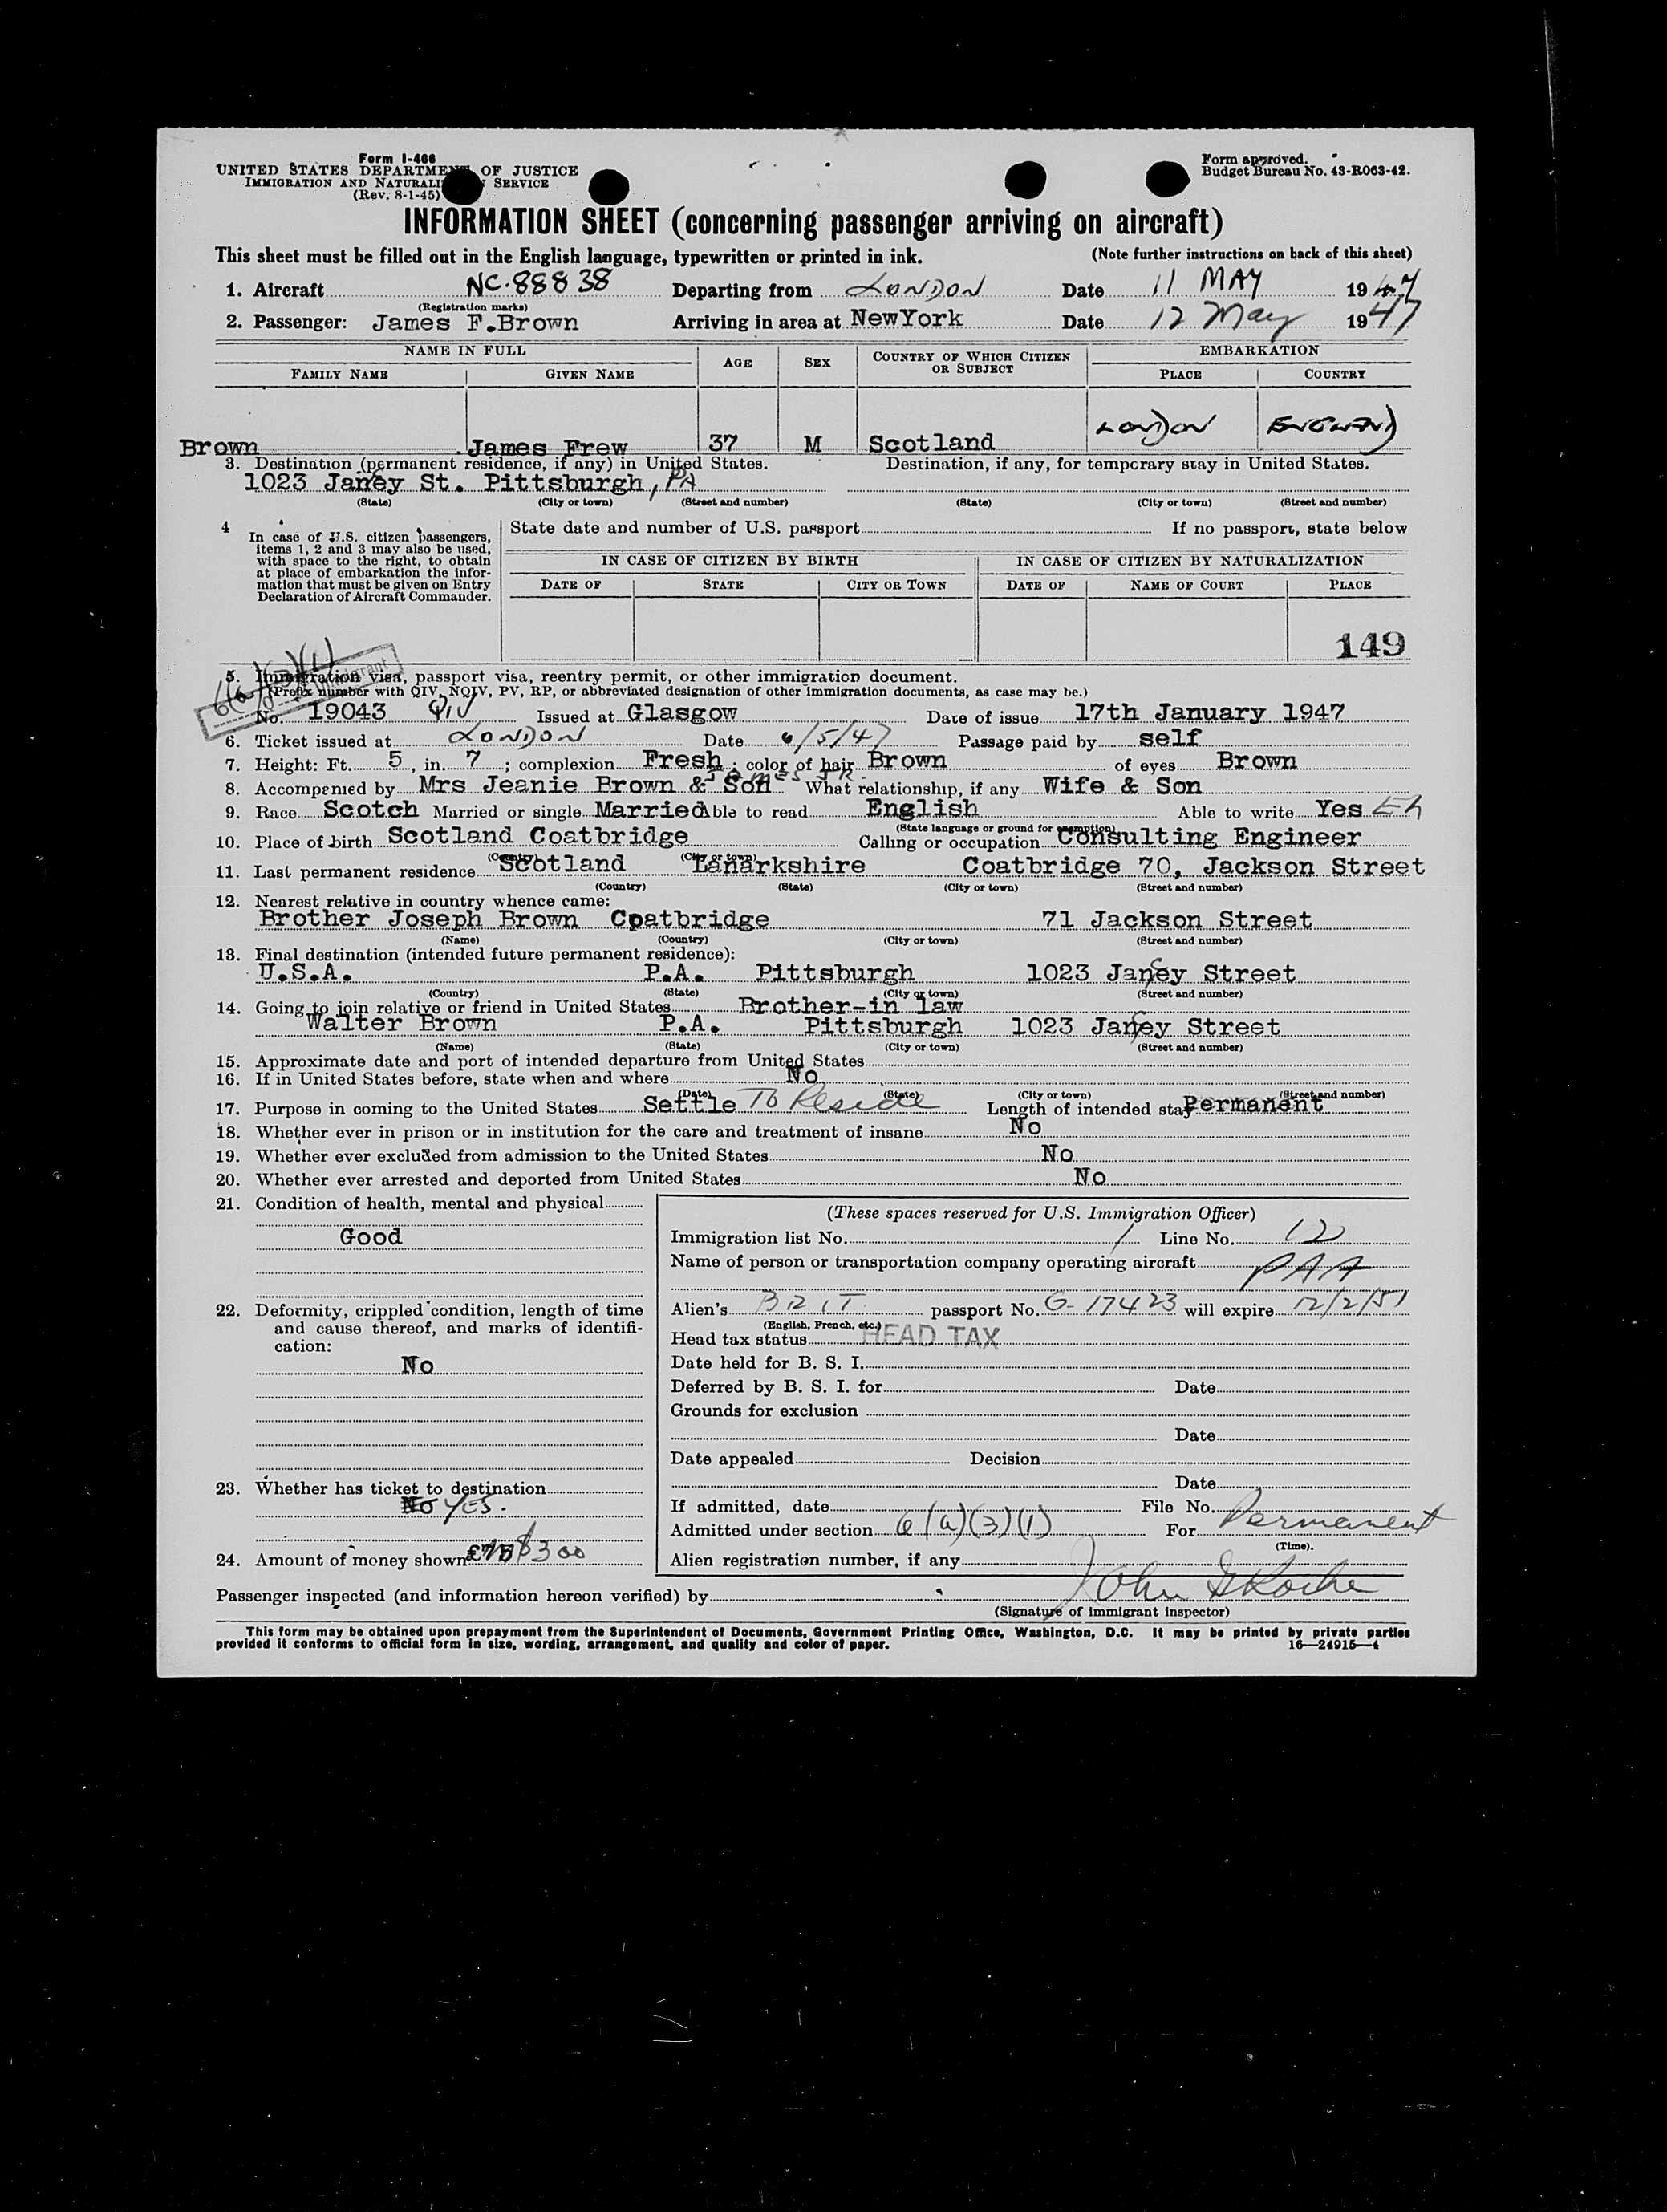 Form I-466
UNITED STATES DEPARTMENT OF JUSTICE
IMMIGRATION AND NATURALI SERVICE
(Rev. 8-1-45)
Form approved.
Budget Bureau No. 43-R063-42.
INFORMATION SHEET (concerning passenger arriving on aircraft)
This sheet must be filled out in the English language, typewritten or printed in ink. (Note further instructions on back of this sheet)
1. Aircraft NC.88838 Departing from LONDON Date 11 MAY 1947
(Registration marks)
2. Passenger: James F.Brown Arriving in area at NewYork Date 12 May 1947
NAME IN FULL AGE SEX COUNTRY OF WHICH CITIZEN OR SUBJECT EMBARKATION
FAMILY NAME GIVEN NAME PLACE COUNTRY
Brown James Frew 37 M Scotland LONDON ENGLAND
3. Destination (permanent residence, if any) in United States. Destination, if any, for temporary stay in United States.
1023 Janey St. Pittsburgh, PA
(State) (City or town) (Street and number) (State) (City or town) (Street and number)
4 In case of U.S. citizen passengers, items 1, 2 and 3 may also be used, with space to the right, to obtain at place of embarkation the information that must be given on Entry Declaration of Aircraft Commander.
State date and number of U.S. passport If no passport, state below
IN CASE OF CITIZEN BY BIRTH IN CASE OF CITIZEN BY NATURALIZATION
DATE OF STATE CITY OR TOWN DATE OF NAME OF COURT PLACE
149
5. Immigration visa, passport visa, reentry permit, or other immigration document.
(Prefix number with QIV, NQIV, PV, RP, or abbreviated designation of other immigration documents, as case may be.)
No. 19043 QIV Issued at Glasgow Date of issue 17th January 1947
6. Ticket issued at LONDON Date 6/5/47 Passage paid by self
7. Height: Ft. 5, in. 7; complexion Fresh; color of hair Brown of eyes Brown
8. Accompanied by Mrs Jeanie Brown & Son JAMES JR. What relationship, if any Wife & Son
9. Race Scotch Married or single Married Able to read English Able to write Yes Eh
(State language or ground for exemption)
10. Place of birth Scotland Coatbridge Calling or occupation Consulting Engineer
(Country) (City or town)
11. Last permanent residence Scotland Lanarkshire Coatbridge 70, Jackson Street
(Country) (State) (City or town) (Street and number)
12. Nearest relative in country whence came:
Brother Joseph Brown Coatbridge 71 Jackson Street
(Name) (Country) (City or town) (Street and number)
13. Final destination (intended future permanent residence):
U.S.A. P.A. Pittsburgh 1023 Janey Street
(Country) (State) (City or town) (Street and number)
14. Going to join relative or friend in United States Brother-in law
Walter Brown P.A. Pittsburgh 1023 Janey Street
(Name) (State) (City or town) (Street and number)
15. Approximate date and port of intended departure from United States
16. If in United States before, state when and where No
(Date) (State) (City or town) (Street and number)
17. Purpose in coming to the United States Settle To Reside Length of intended stay Permanent
18. Whether ever in prison or in institution for the care and treatment of insane No
19. Whether ever excluded from admission to the United States No
20. Whether ever arrested and deported from United States No
21. Condition of health, mental and physical
Good
22. Deformity, crippled condition, length of time and cause thereof, and marks of identification:
No
23. Whether has ticket to destination
No YES.
24. Amount of money shown £75 $300
(These spaces reserved for U.S. Immigration Officer)
Immigration list No. 1 Line No. 12
Name of person or transportation company operating aircraft PAA
Alien's BRIT passport No. G-17423 will expire 12/2/51
(English, French, etc.)
Head tax status HEAD TAX
Date held for B. S. I.
Deferred by B. S. I. for Date
Grounds for exclusion
Date
Date appealed Decision
Date
If admitted, date File No.
Admitted under section 6(a)(3)(1) For Permanent
(Time).
Alien registration number, if any
Passenger inspected (and information hereon verified) by John G Roche
(Signature of immigrant inspector)
This form may be obtained upon prepayment from the Superintendent of Documents, Government Printing Office, Washington, D.C. It may be printed by private parties
provided it conforms to official form in size, wording, arrangement, and quality and color of paper. 16—24915-4